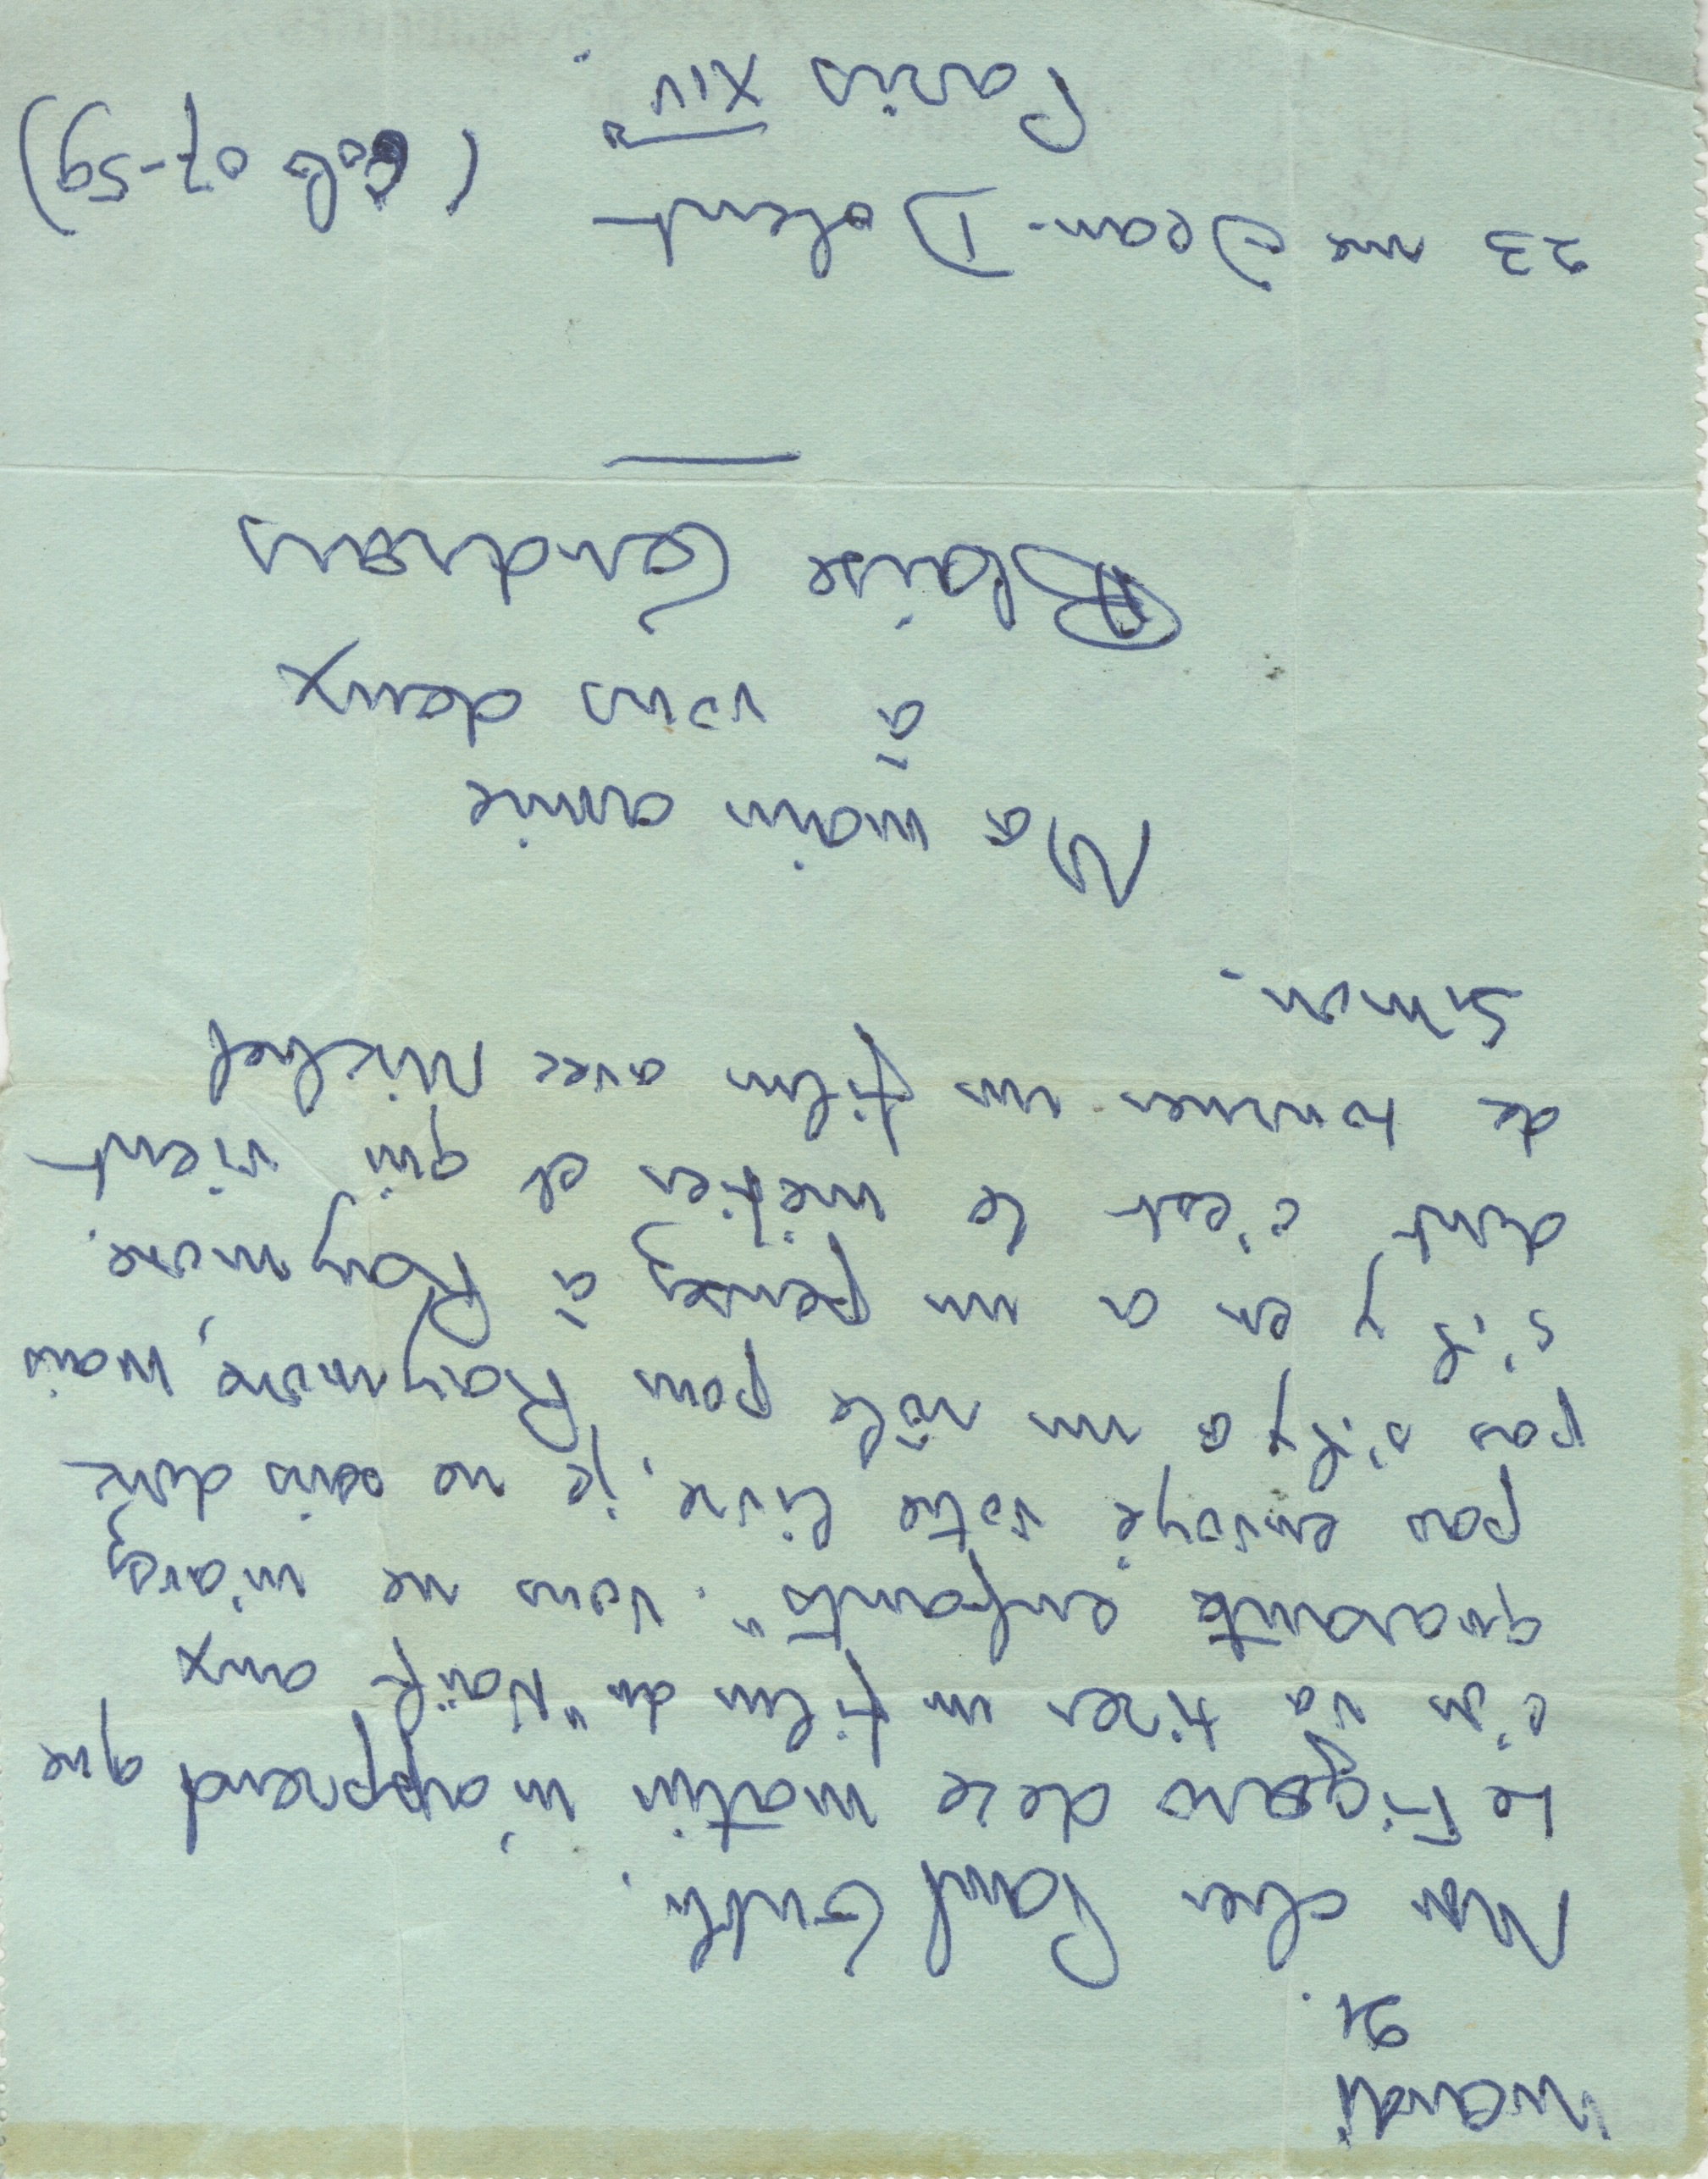 mardi
21.
Mon cher Paul Guth,
Le Figaro de ce matin m'apprend que
l'on va tirer un film du "Naïf aux
quarante enfants". Vous ne m'avez
pas envoyé votre livre, je ne sais donc
pas s'il y a un rôle pour Raymone, mais
s'il y en a un pensez à Raymone,
dont c'est le métier et qui vient
de tourner un film avec Michel
Simon.
Ma main amie
à vous deux
Blaise Cendrars
23 rue Jean-Dolent
Paris XIVe. (Gob 07-59)